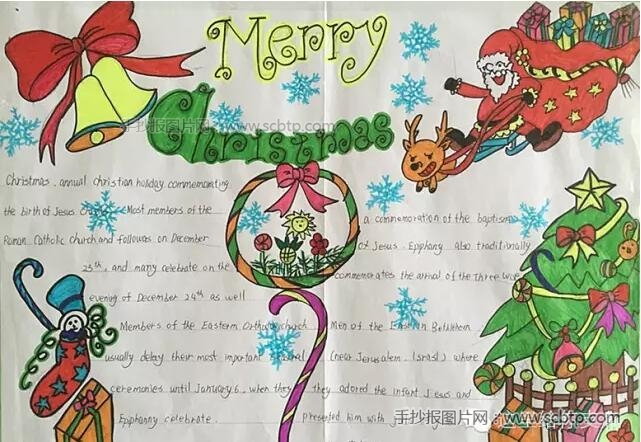 Merry
Christmas
手抄报图片网 www.scbtp.com
Christmas, annual christian holiday commemorating
the birth of Jesus Most members of the
Roman Catholic church and followas on December
25th, and many celebrate on the
evening of December 24th as well
Members of the Eastern
usually delay their most important
ceremonies until January 6, when they
Epiphanny celebrate
a commemoration of the baptism
of Jesus. Epiphany also traditionally
commemorates the arrival of the Three wise
Men of the Eastern Bethlehem
(near Jerusalem, Israsl) where
they adored the infant Jesus and
presented him with
手抄报图片网 www.scbtp.com